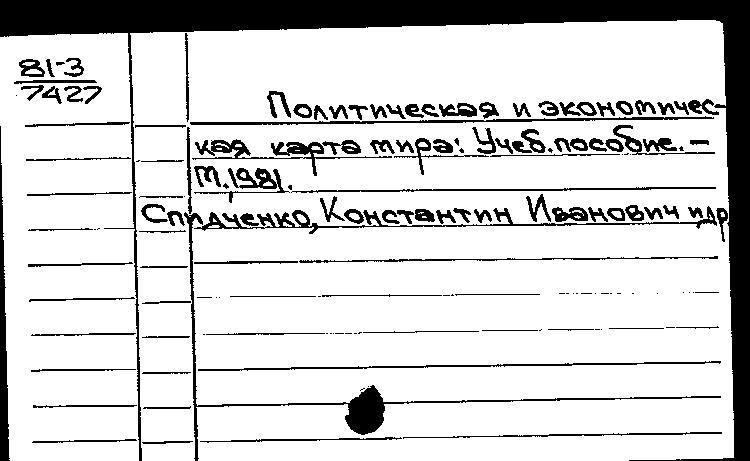 81-3
7427
Политическая и экономичес-
кая карта мира: Учеб. пособие. –
М., 1981.
Спидченко, Константин Иванович и др